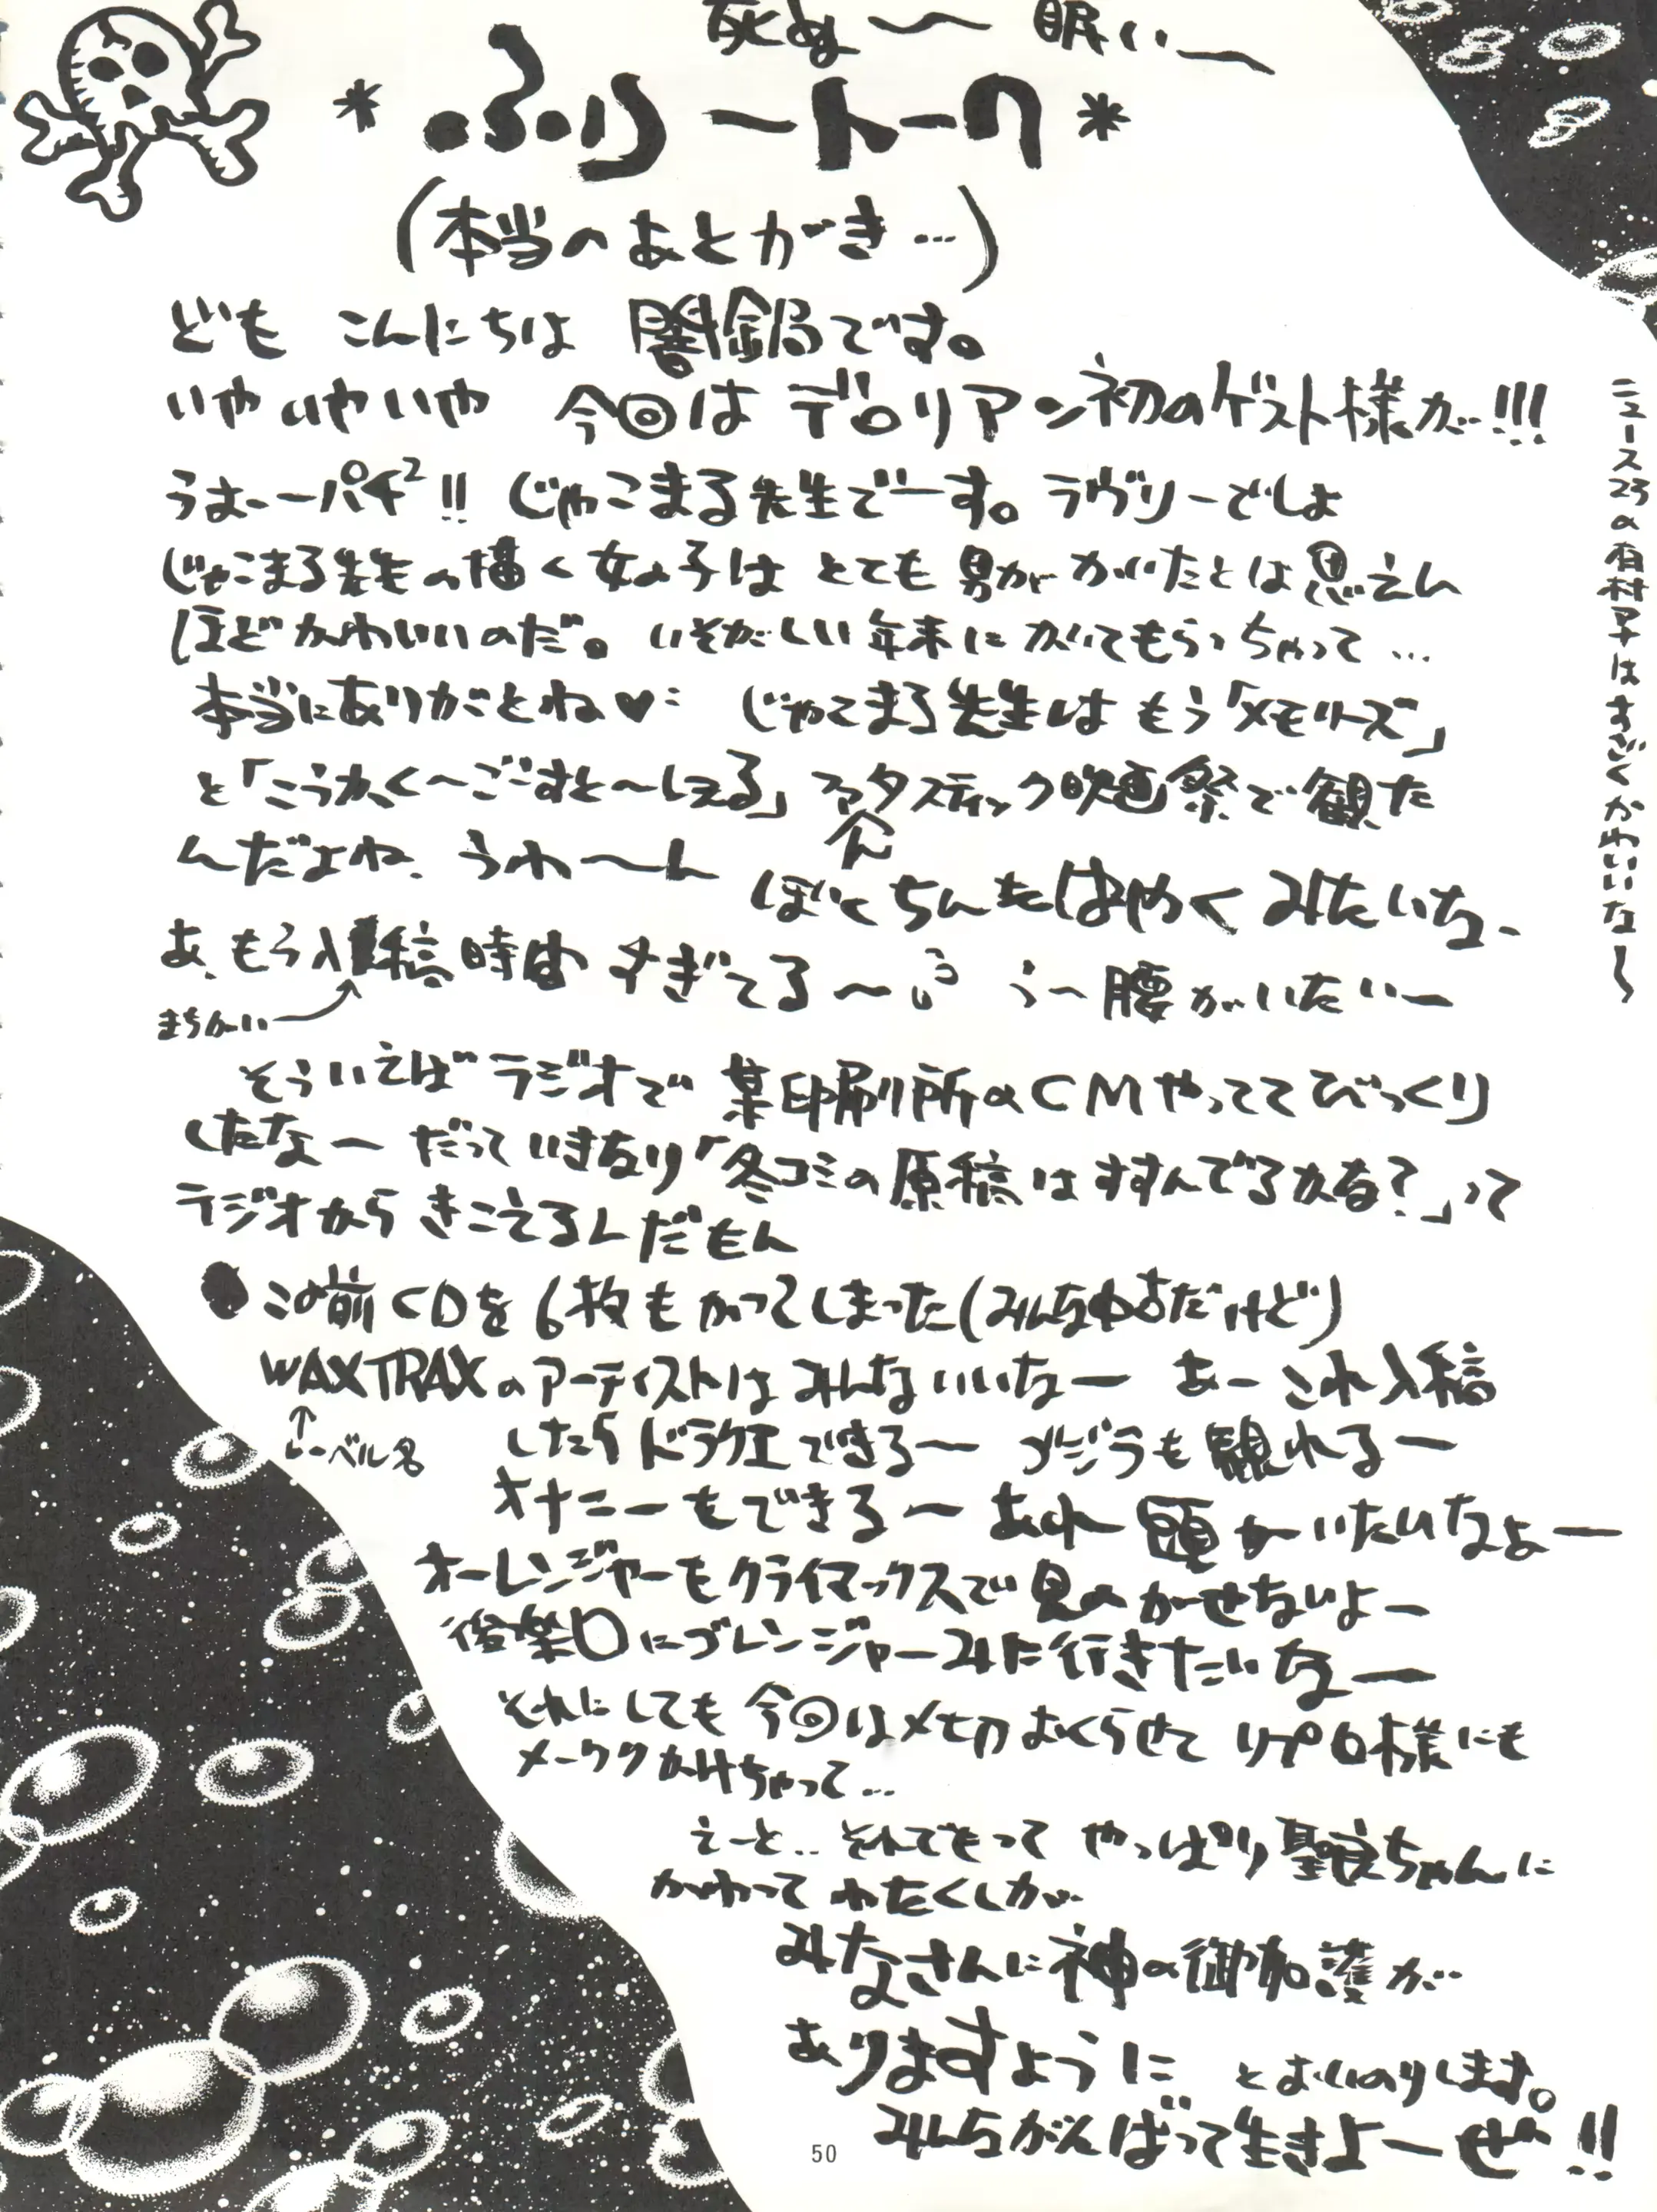 死ぬ〜 眠い〜
*ふりートーク*
(本当のあとがき…)
ども こんにちは 闇鍋です。
いやいやいや 今回は デロリアン初のゲスト様が!!!
うおーーパチ²!! じゃこまる先生でーす。 ラヴリーでしょ
じゃこまる先生の描く女の子は とても 男が かいたとは思えん
ほどかわいいのだ。 いそがしい年末にかいてもらっちゃって…
本当にありがとね♥ じゃこまる先生は もう「メモリーズ」
と「こうかく〜ごーすと〜しぇる」 ファンタスティック映画祭で観た
んだよね、 うわ〜ん
ぼくちんもはやく みたいな、
あ、もう入稿時間 すぎてる〜 う〜腰がいたいー
まちがい
そういえば ラジオで 某印刷所のCMやっててびっくり
したなー だって いきなり「冬コミの原稿はすすんでるかな?」って
ラジオから きこえるんだもん
●この前CDを6枚もかってしまった(みんな中古だけど)
WAXTRAXのアーティストはみんないいなー あー これ入稿
レーベル名
したらドラクエできる〜 ゴジラも観れるー
オナニーもできる〜 あれ 頭がいたいなよー
オーレンジャーもクライマックスで 見のがせないよー
後楽□にゴレンジャーみに行きたいなー
それにしても 今回は〆切おくらせて リプロ様にも
メーワクかけちゃって…
えーと.. それでもって やっぱり聖良ちゃんに
かわって わたくしが
みなさんに神の御加護が
ありますように とおいのりします。
みんながんばって生きよーぜ!!
ニュース23の有村アナはすごくかわいいな〜
50